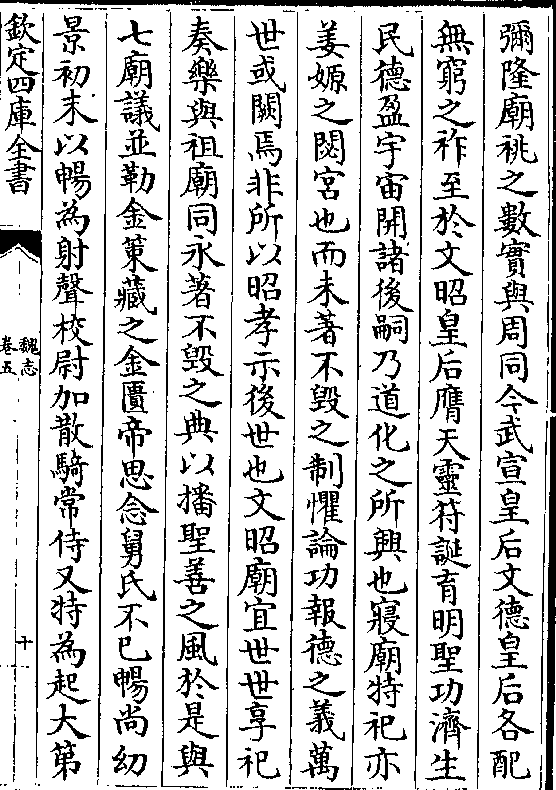 彌隆廟祧之數實與周同今武宣皇后文德皇后各配
無窮之祚至於文昭皇后膺天靈符誕育明聖功濟生
民德盈宇宙開諸後嗣乃道化之所興也寢廟特祀亦
姜嫄之閟宮也而未著不毀之制懼論功報德之義萬
世或闕焉非所以昭孝示後世也文昭廟宜世世享祀
奏樂與祖廟同永著不毀之典以播聖善之風於是與
七廟議並勒金策藏之金匱帝思念舅氏不已暢尚幼
景初末以暢為射聲校尉加散騎常侍又特為起大第
欽定四庫全書
魏志
卷五
十